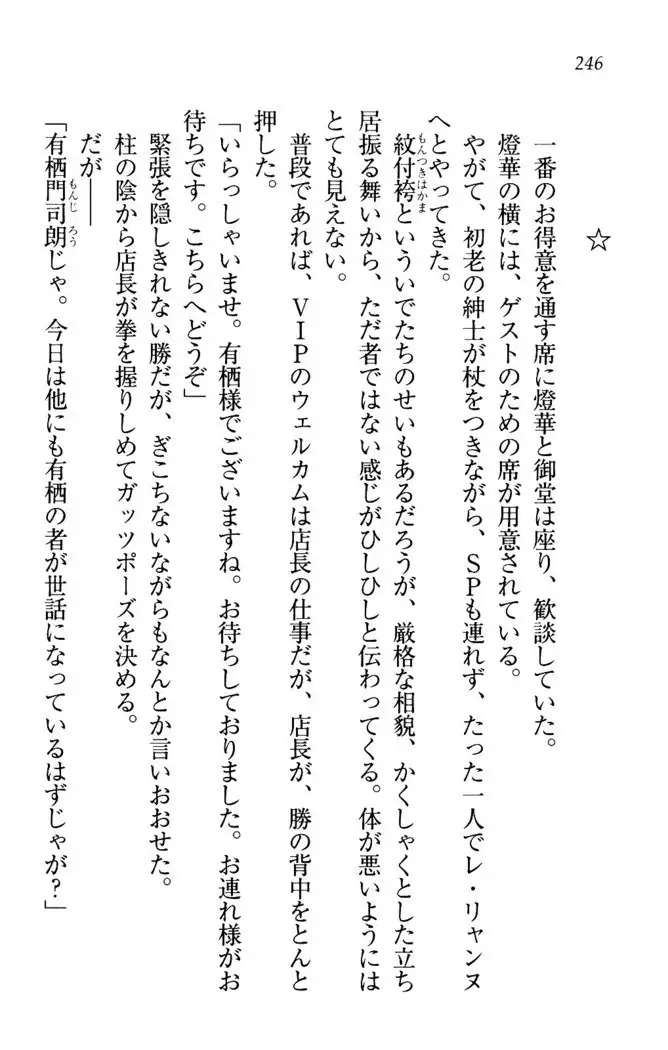 246
☆
一番のお得意を通す席に燈華と御堂は座り、歓談していた。
燈華の横には、ゲストのための席が用意されている。
やがて、初老の紳士が杖をつきながら、SPも連れず、たった一人でレ・リャンヌ
へとやってきた。
紋付袴といういでたちのせいもあるだろうが、厳格な相貌、かくしゃくとした立ち
居振る舞いから、ただ者ではない感じがひしひしと伝わってくる。体が悪いようには
とても見えない。
普段であれば、VIPのウェルカムは店長の仕事だが、店長が、勝の背中をとんと
押した。
「いらっしゃいませ。有栖様でございますね。お待ちしておりました。お連れ様がお
待ちです。こちらへどうぞ」
緊張を隠しきれない勝だが、ぎこちないながらもなんとか言いおおせた。
柱の陰から店長が拳を握りしめてガッツポーズを決める。
だが――
「有栖門司朗じゃ。今日は他にも有栖の者が世話になっているはずじゃが？」
もんつきはかま
もんじ ろう